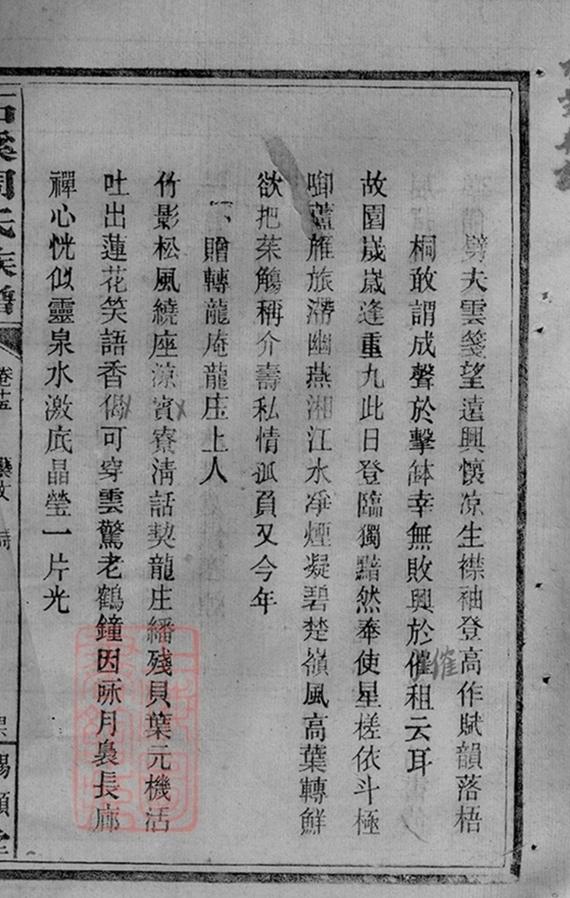 劈夫雲箋望遠興懷凉生襟袖登高作賦韻落梧
桐敢謂成聲於擊缽幸無敗興於催租云耳
催
故園嵗嵗逢重九此日登臨獨黯然奉使星槎依斗極
啣蘆雁旅滯幽燕湘江水凈煙凝碧楚嶺風高葉轉鮮
欲把茱觴稱介壽私情孤負又今年
贈轉龍庵龍庄上人
竹影松風繞座凉賓寮淸話契龍庄繙殘貝葉元機活
吐出蓮花笑語香偈可穿雲驚老鶴鐘因咏月裊長廊
禪心恍似靈泉水激底晶瑩一片光
石溪周氏族譜
卷十五
藝文
詩
錫類堂